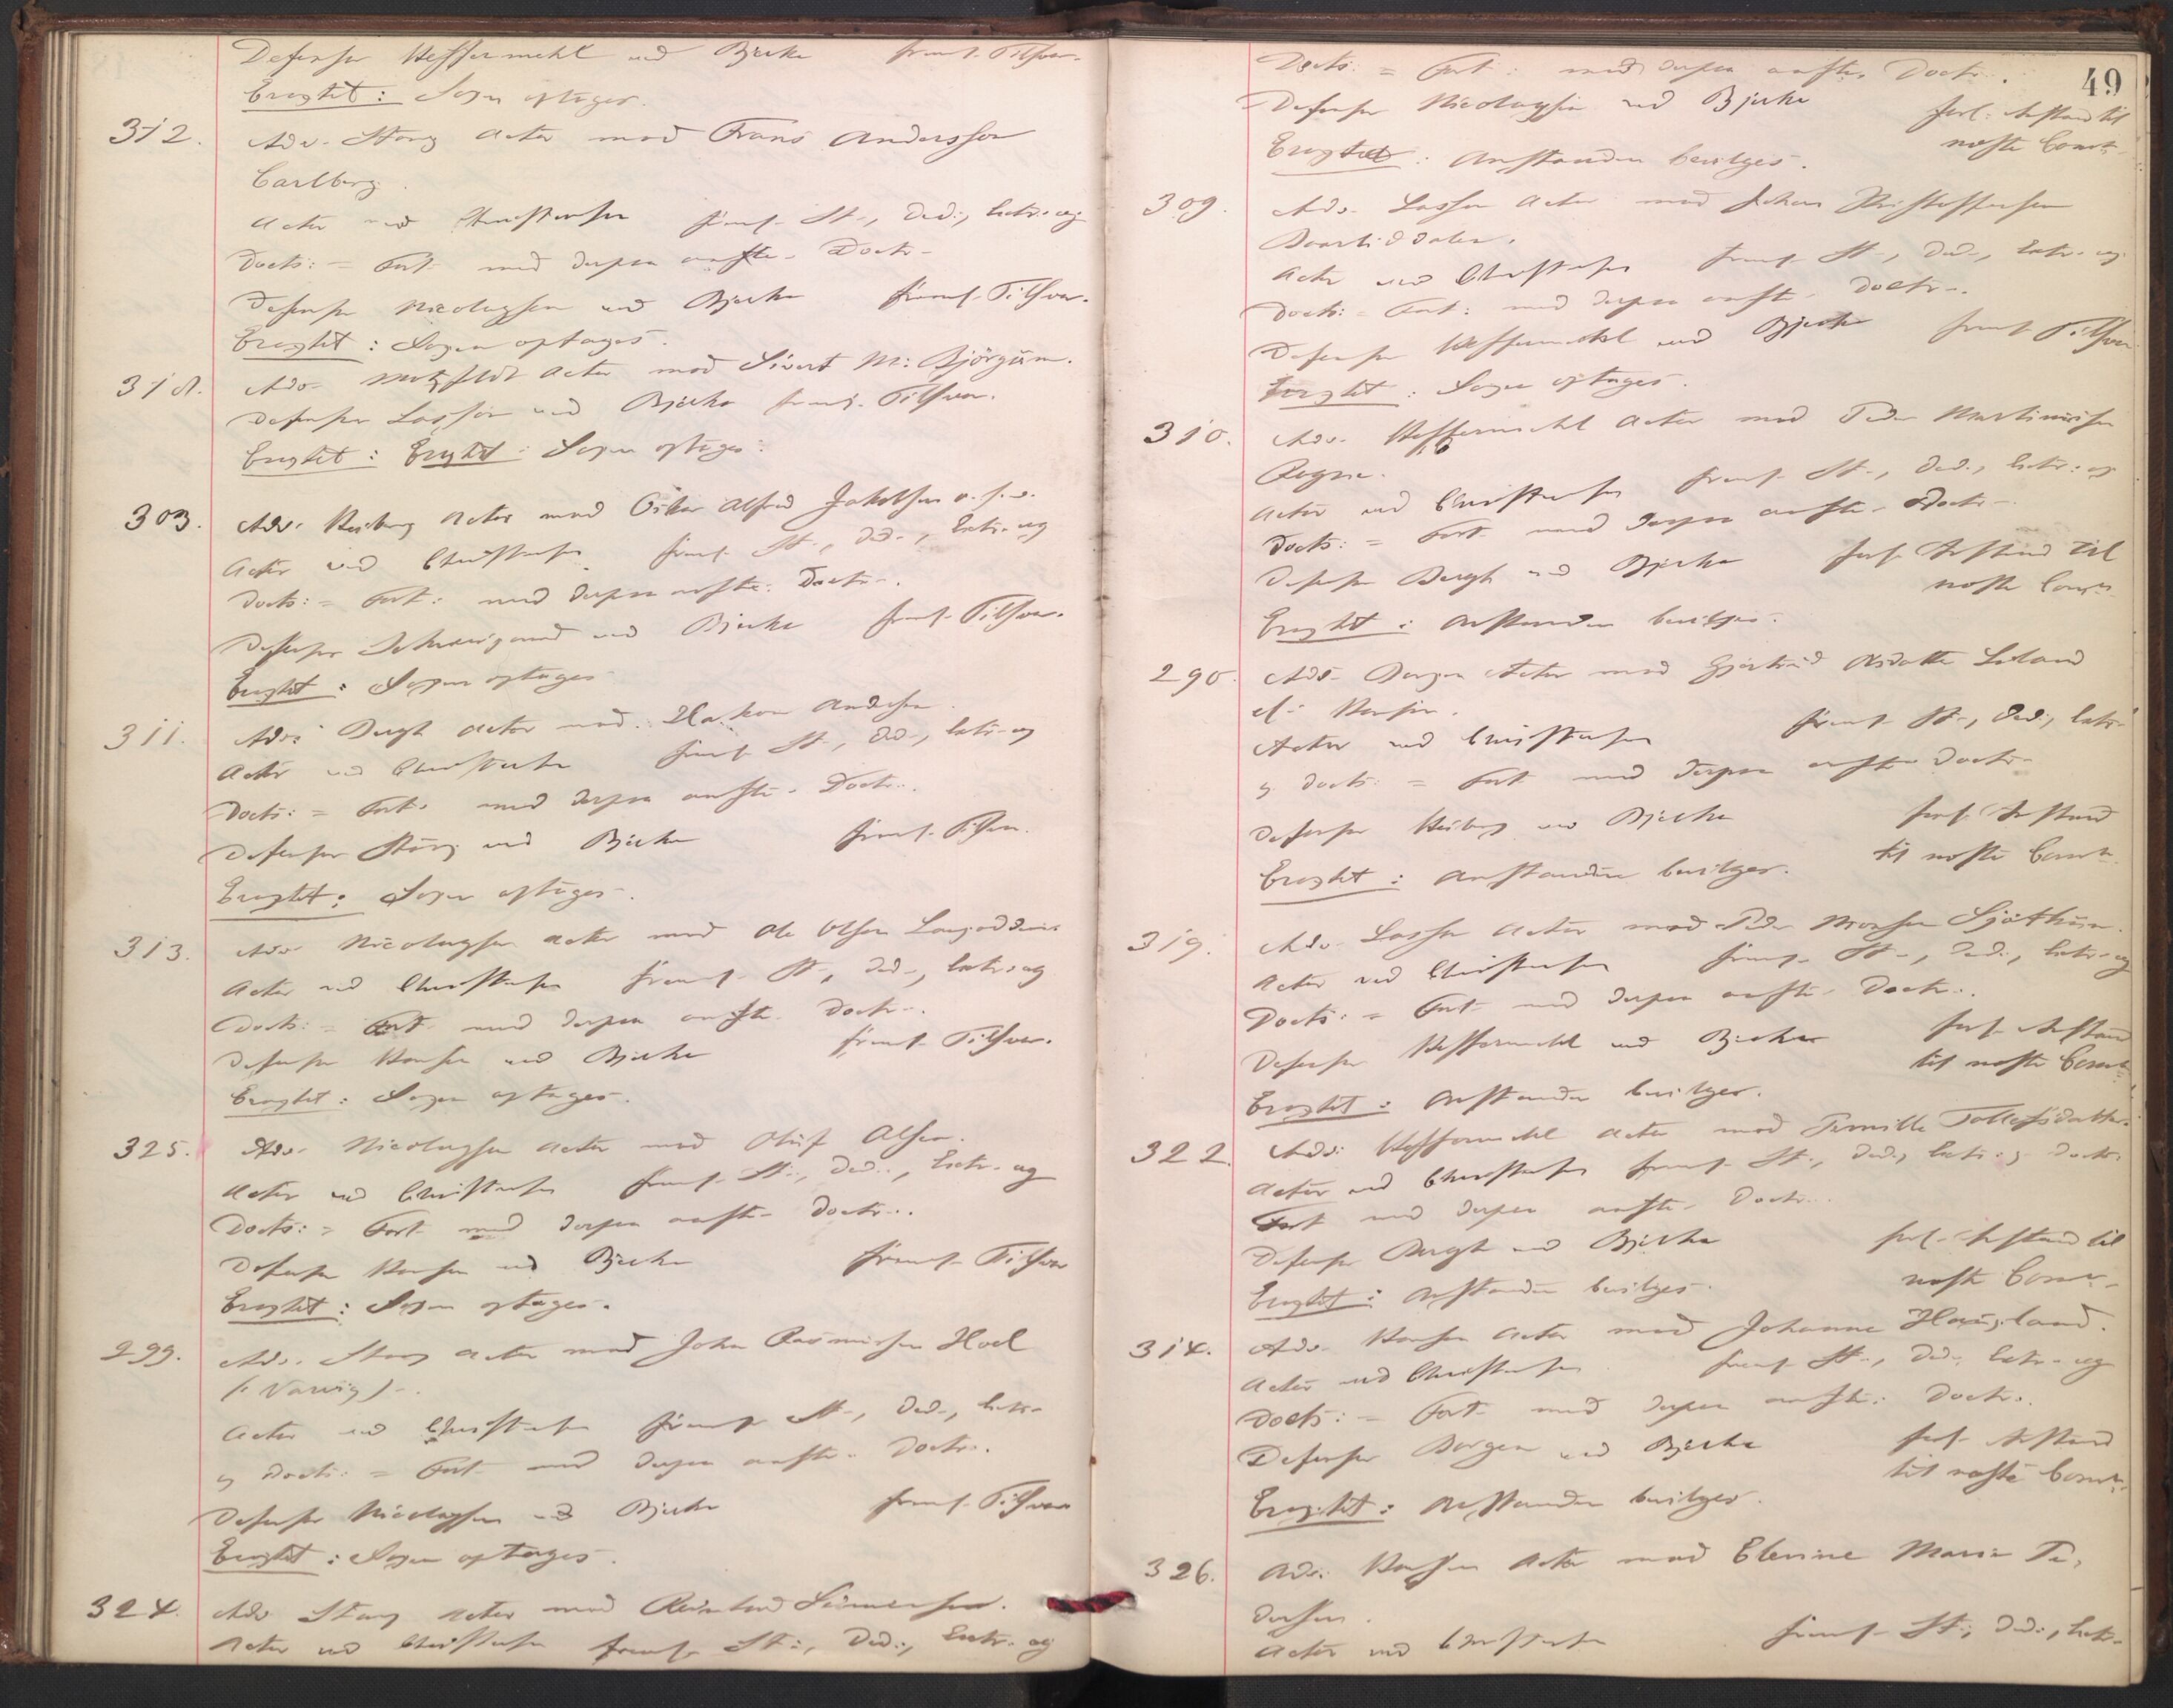 Defensor Heffermehl ved Bjerke freml. Tilsvar.
Eragtet: Sagen optages.
312. Adv. Stang Actor mod Frans Andersson
Carlberg.
Actor ved Christensen freml. St-, Ded-, Extr. og
Docts: = Fort. med derpaa anfte. Doctr-
Defensor Nicolaysen ved Bjerke freml. Tilsvar.
Eragtet: Sagen optages.
318. Adv. Motzfeldt Actor mod Sivert M: Björgum.
Defensor Lasson ved Bjerke freml. Tilsvar.
Eragtet: Eragtet: Sagen optages:
303. Adv. Heiberg Actor mod Oskar Alfred Jakobsen o. s. v.
Actor ved Christensen freml. St-, Ded-, Extr. og
Docts: = Fort: med derpaa anfte. Doctr-.
Defensor ved Bjerke freml. Tilsvar.
Eragtet: Sagen optages
311. Adv: Bergh Actor mod Haakon Andersen
Actor ved Christensen freml. St-, Ded-, Extr. og
Docts: = Fort. med derpaa anfte. Doctr..
Defensor Stang ved Bjerke freml. Tilsvar.
Eragtet: Sagen optages.
313. Adv. Nicolaysen Actor mod Ole Olsen
Actor ved Christensen freml. St-, Ded-, Extr. og
Docts: = Fort. med derpaa anfte. Doctr-.
Defensor Hansen ved Bjerke freml. Tilsvar.
Eragtet: Sagen optages.
325. Adv. Nicolaysen Actor mod Oluf Olsen.
Actor ved Christensen freml. St:, Ded:, Extr. og
Docts: = Fort. med derpaa anfte. Doctr..
Defensor Hansen ved Bjerke freml. Tilsvar
Eragtet: Sagen optages.
299. Adv. Stang Actor mod John Rasmussen Hoel
(: Narvig) -.
Actor ved Christensen freml. St-, Ded-, Extr.
og Docts: = Fort. med derpaa anfte. Doctr..
Defensor Nicolaysen ved Bjerke freml. Tilsvar
Eragtet: Sagen optages.
324. Adv Stang Actor mod Reinhard
Actor ved Christensen freml. St:, Ded:, Extr. og
49
Docts: = Fort: med derpaa anfte. Doctr.
Defensor Nicolaysen ved Bjerke forl. Anstand til
næste Court.
Eragtet: Anstanden bevilges.
309. Adv. Lasson Actor mod Johan Kristoffersen
Actor ved Christensen freml. St-, Ded-, Extr. og
Docts: = Fort: med derpaa anfte. Doctr-.
Defensor Heffermehl ved Bjerke freml. Tilsvar
Eragtet: Sagen optages.
310. Adv. Heffermehl Actor mod Peder Martinussen
Rogne.
Actor ved Christensen freml. St-, Ded., Extr. og
Docts: = Fort. med derpaa anfte. Doctr-
Defensor Bergh ved Bjerke forl. Anstand til
næste Court
Eragtet: Anstanden bevilges.
290. Adv- Borgen Actor mod Gjertrud Leland
el: Hansen.
Actor ved Christensen freml. St-, Ded:, Extr.
og Docts: = Fort. med derpaa anfte. Doctr-
Defensor Heiberg ved Bjerke forl. Anstand
til næste Court.
Eragtet: Anstanden bevilges.
319. Adv. Lasson Actor mod Peder Monsen Sjøthun.
Actor ved Christensen freml. St-, Ded:, Extr. og
Docts: = Fort. med derpaa anfte. Doctr..
Defensor Heffermehl ved Bjerke forl. Anstand
til næste Court.
Eragtet: Anstanden bevilges.
322. Adv: Heffermehl Actor mod Pernille Tollefsdatter.
Actor ved Christensen freml. St., Ded., Extr. og Docts
Fort med derpaa anfte. Doctr..
Defensor Bergh ved Bjerke forl. Anstand til
næste Court.
Eragtet: Anstanden bevilges.
314. Adv. Hansen Actor mod Johanne Haugland.
Actor ved Christensen freml. St-, Ded., Extr. og
Docts: = Fort. med derpaa anfte: Doctr..
Defensor Borgen ved Bjerke forl. Anstand
til næste Court.
Eragtet: Anstanden bevilges.
326. Adv: Hansen Actor mod Elevine Marie Pe-
dersen.
Actor ved Christensen freml. St:, Ded:, Extr.